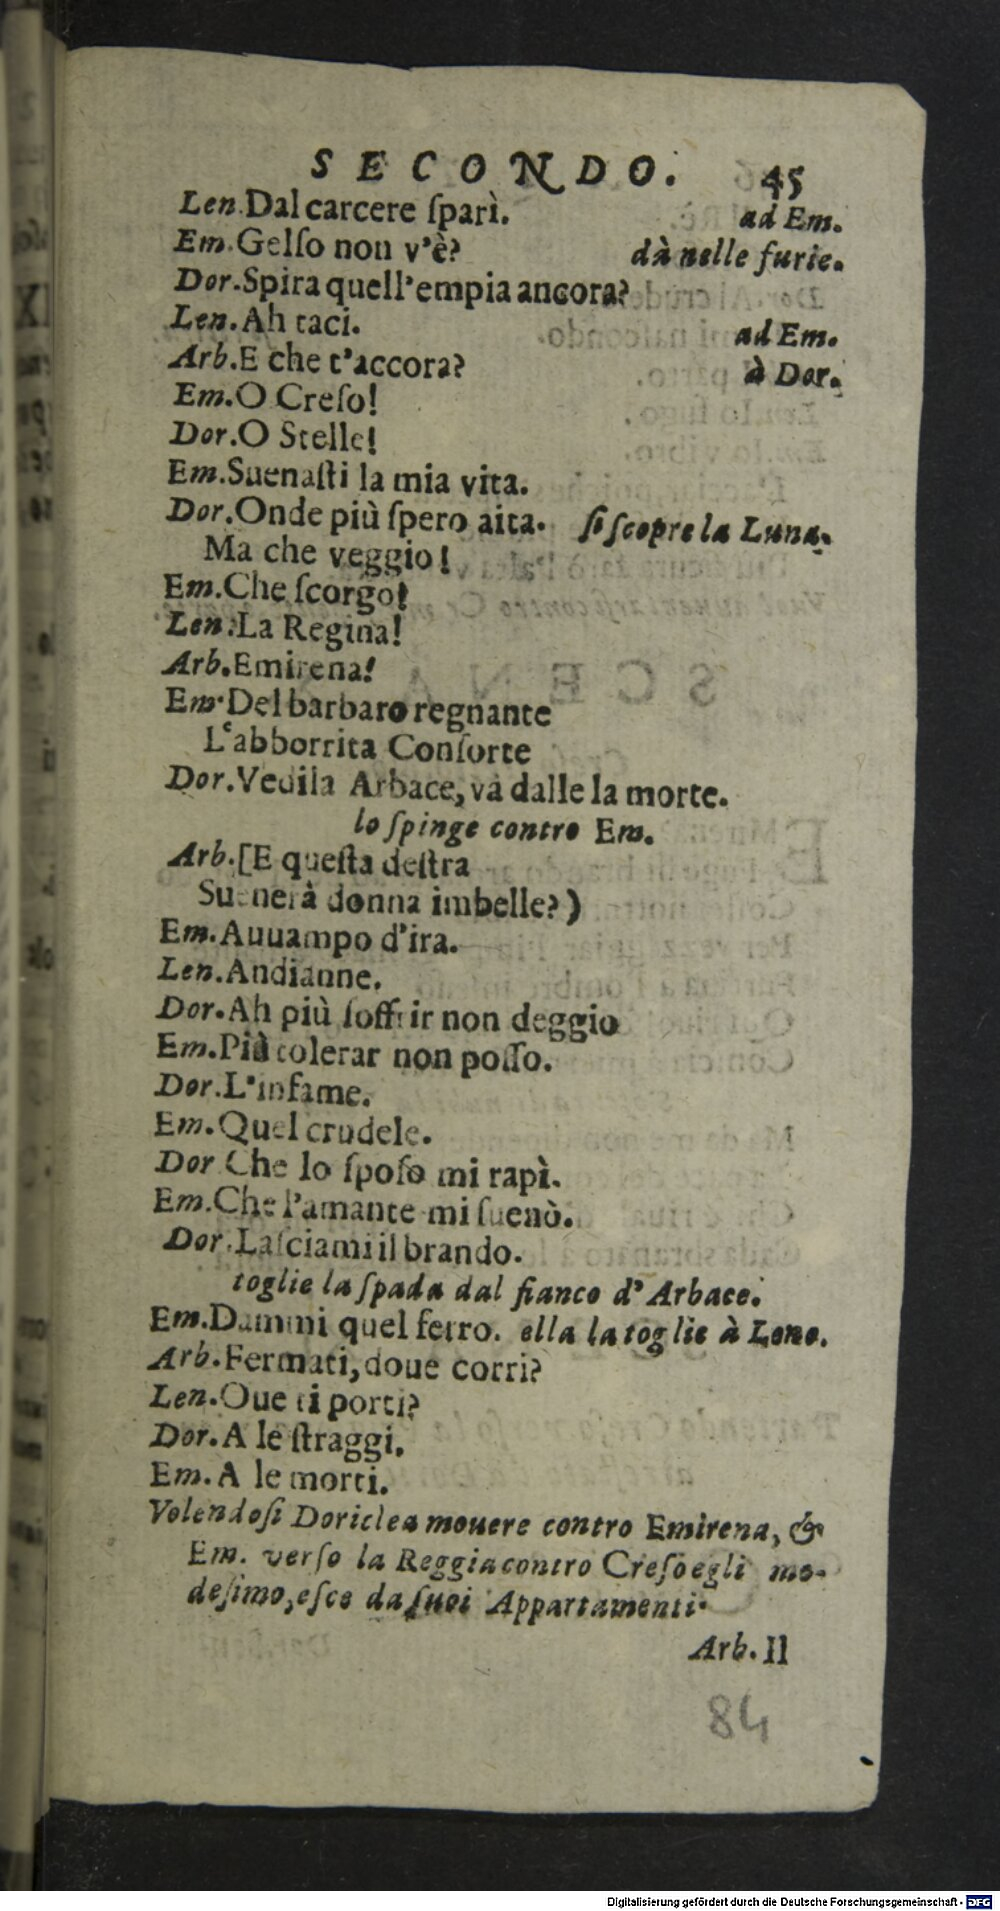 SECONDO. 45
Len. Dal carcere ſparì. ad Em.
Em. Gelſo non v'è? dà nelle furie.
Dor. Spira quell'empia ancora?
Len. Ah taci. ad Em.
Arb. E che t'accora? à Dor.
Em. O Creſo!
Dor. O Stelle!
Em. Suenaſti la mia vita.
Dor. Onde più ſpero aita. ſi ſcopre la Luna.
Ma che veggio!
Em. Che ſcorgo!
Len. La Regina!
Arb. Emirena!
Em. Del barbaro regnante
L'abborrita Conſorte
Dor. Vedila Arbace, và dalle la morte.
lo ſpinge contro Em.
Arb. [E queſta deſtra
Suenerà donna imbelle?)
Em. Auuampo d'ira.
Len. Andianne.
Dor. Ah più ſoffrir non deggio
Em. Più tolerar non poſſo.
Dor. L'infame.
Em. Quel crudele.
Dor Che lo ſpoſo mi rapì.
Em. Che l'amante mi ſuenò.
Dor. Laſciami il brando.
toglie la ſpada dal fianco d'Arbace.
Em. Dammi quel ferro. ella la toglie à Leno.
Arb. Fermati, doue corri?
Len. Oue ti porti?
Dor. A le ſtraggi.
Em. A le morti.
Volendoſi Doriclea mouere contro Emirena, &
Em. verſo la Reggia contro Creſo egli me-
deſimo, eſce da ſuoi Appartamenti.
Arb. Il
84
Digitalisierung gefördert durch die Deutsche Forschungsgemeinschaft - DFG